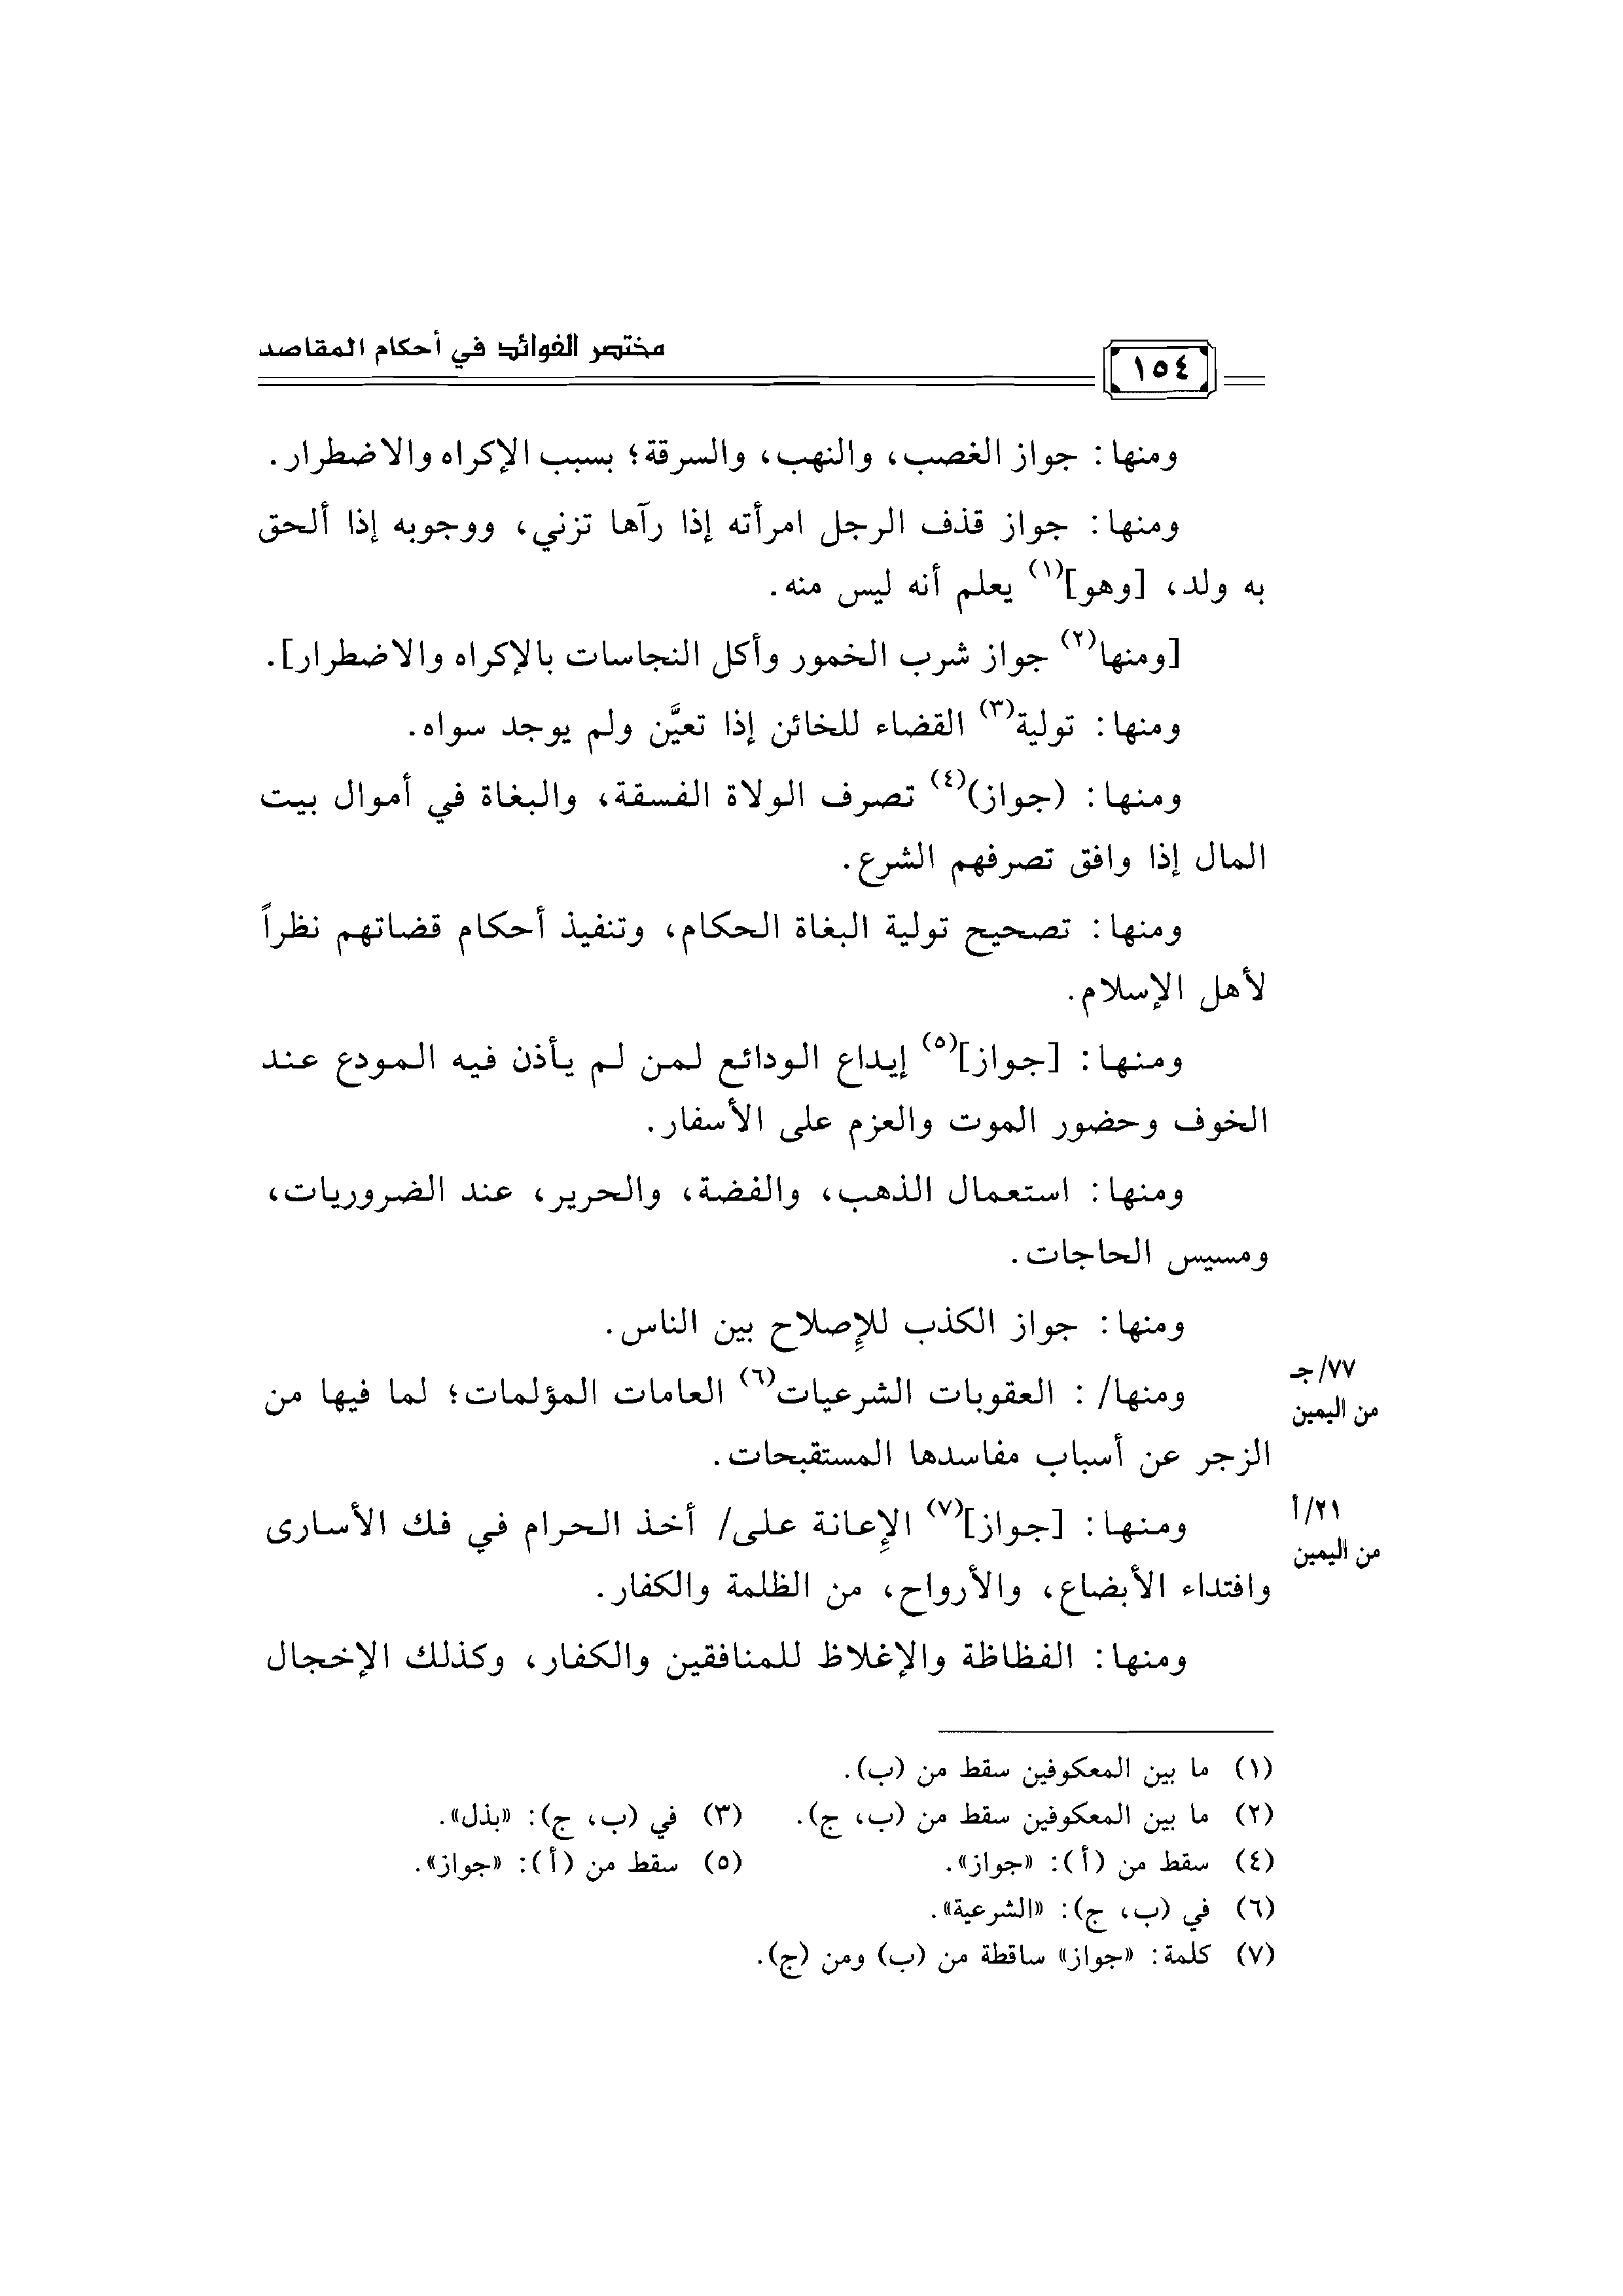 مختصر الفوائد في أحكام المقاصد
١٥٤
ومنها: جواز الغصب، والنهب، والسرقة؛ بسبب الإكراه والاضطرار.
ومنها: جواز قذف الرجل امرأته إذا رآها تزني، ووجوبه إذا ألحق
به ولد، [وهو](١) يعلم أنه ليس منه.
[ومنها(٢) جواز شرب الخمور وأكل النجاسات بالإكراه والاضطرار].
ومنها: تولية(٣) القضاء للخائن إذا تعيَّن ولم يوجد سواه.
ومنها: (جواز)(٤) تصرف الولاة الفسقة، والبغاة في أموال بيت
المال إذا وافق تصرفهم الشرع.
ومنها: تصحيح تولية البغاة الحكام، وتنفيذ أحكام قضاتهم نظراً
لأهل الإسلام.
ومنها: [جواز](٥) إيداع الودائع لمن لم يأذن فيه المودع عند
الخوف وحضور الموت والعزم على الأسفار.
ومنها: استعمال الذهب، والفضة، والحرير، عند الضروريات،
ومسيس الحاجات.
ومنها: جواز الكذب للإِصلاح بين الناس.
٧٧/جـ
من اليمين
ومنها/ : العقوبات الشرعيات(٦) العامات المؤلمات؛ لما فيها من
الزجر عن أسباب مفاسدها المستقبحات.
٢١/أ
من اليمين
ومنها: [جواز](٧) الإِعانة على/ أخذ الحرام في فك الأسارى
وافتداء الأبضاع، والأرواح، من الظلمة والكفار.
ومنها: الفظاظة والإغلاظ للمنافقين والكفار، وكذلك الإخجال
(١) ما بين المعكوفين سقط من (ب).
(٢) ما بين المعكوفين سقط من (ب، ج). (٣) في (ب، ج): «بذل».
(٤) سقط من (أ): «جواز». (٥) سقط من (أ): «جواز».
(٦) في (ب، ج): «الشرعية».
(٧) كلمة: «جواز» ساقطة من (ب) ومن (ج).